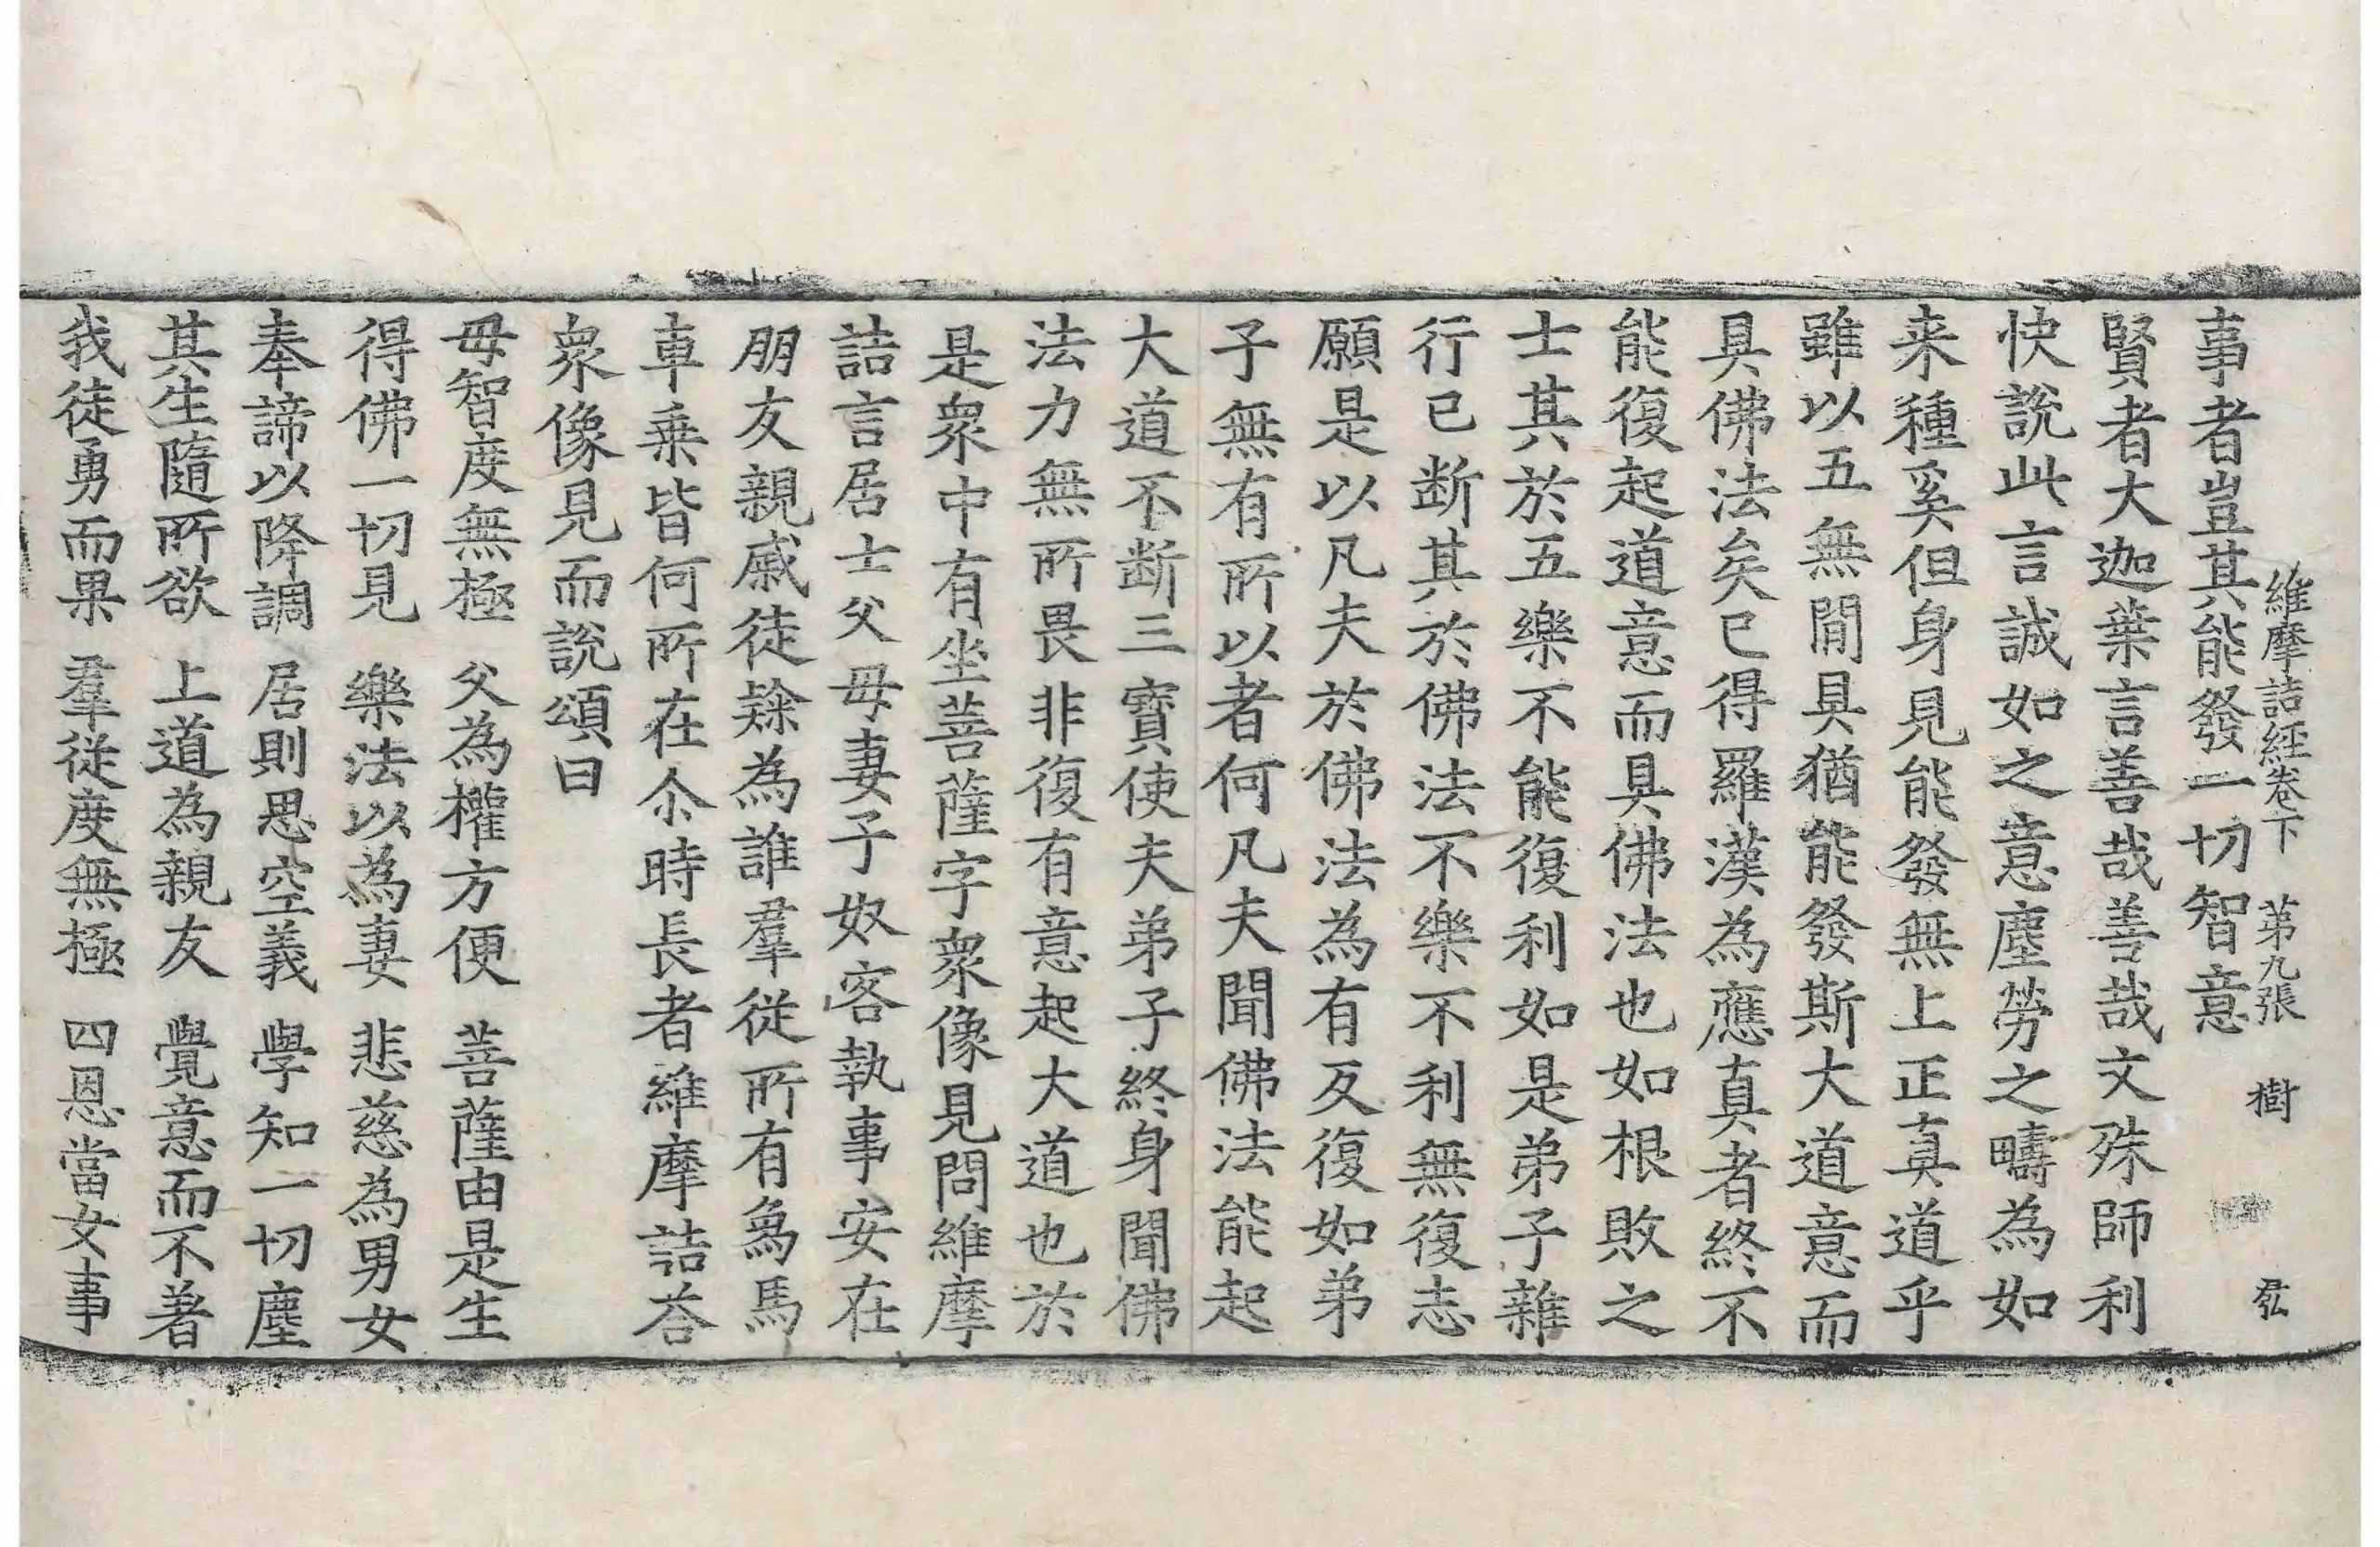 維摩詰經卷下　第九張　樹　𢎞
事者豈其能發一切智意
賢者大迦葉言善哉善哉文殊師利
快說此言誠如之意塵勞之疇為如
来種奚但身見能發無上正真道乎
雖以五無閒具猶能發斯大道意而
具佛法矣已得羅漢為應真者終不
能復起道意而具佛法也如根敗之
士其於五樂不能復利如是弟子雜
行已断其於佛法不樂不利無復志
願是以凡夫於佛法為有反復如弟
子無有所以者何凡夫聞佛法能起
大道不断三寶使夫弟子終身聞佛
法力無所畏非復有意起大道也於
是衆中有坐菩薩字衆像見問維摩
詰言居士父母妻子奴客執事安在
朋友親戚徒隸為誰羣従所有為馬
車乗皆何所在尒時長者維摩詰荅
衆像見而說頌曰
母智度無極　父為權方便　菩薩由是生
得佛一切見　樂法以為妻　悲慈為男女
奉諦以降調　居則思空義　學知一切塵
其生隨所欲　上道為親友　覺意而不著
我徒勇而果　羣従度無極　四恩當女事